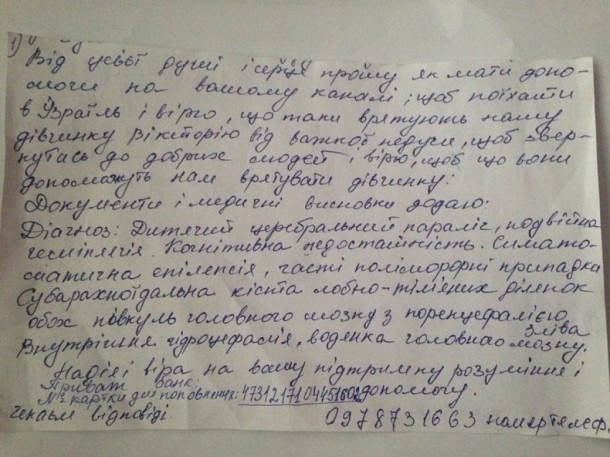 1)
Від усієї душі і серця прошу як мати допо-
моги на вашому каналі; щоб поїхати
в Узраїль і вірю, що таки врятують нашу
дівчинку Вікторію від важкої недуги, щоб звер-
нутись до добрих людей і вірю, щоб що вони
допоможуть нам врятувати дівчинку:
Документи і медичні висновки додаю:
Діагноз: Дитячий церебральний параліс, подвійна
геміплегія. Когнітивна недостайність. Симато-
матична епілепсія, часті поліморфні припадки
Субарахноїдальна кіста лобно-тімяних ділянок
обох півкуль головного мозку з поренцефалією
зліва
Внутрішня гідроцефалія, водянка головного мозку.
Надія і віра на вашу підтримку розуміння і
Приват банк: допомогу.
№ картки для поповнення:
Чекаєм відповіді. 0978731663 номер телеф.